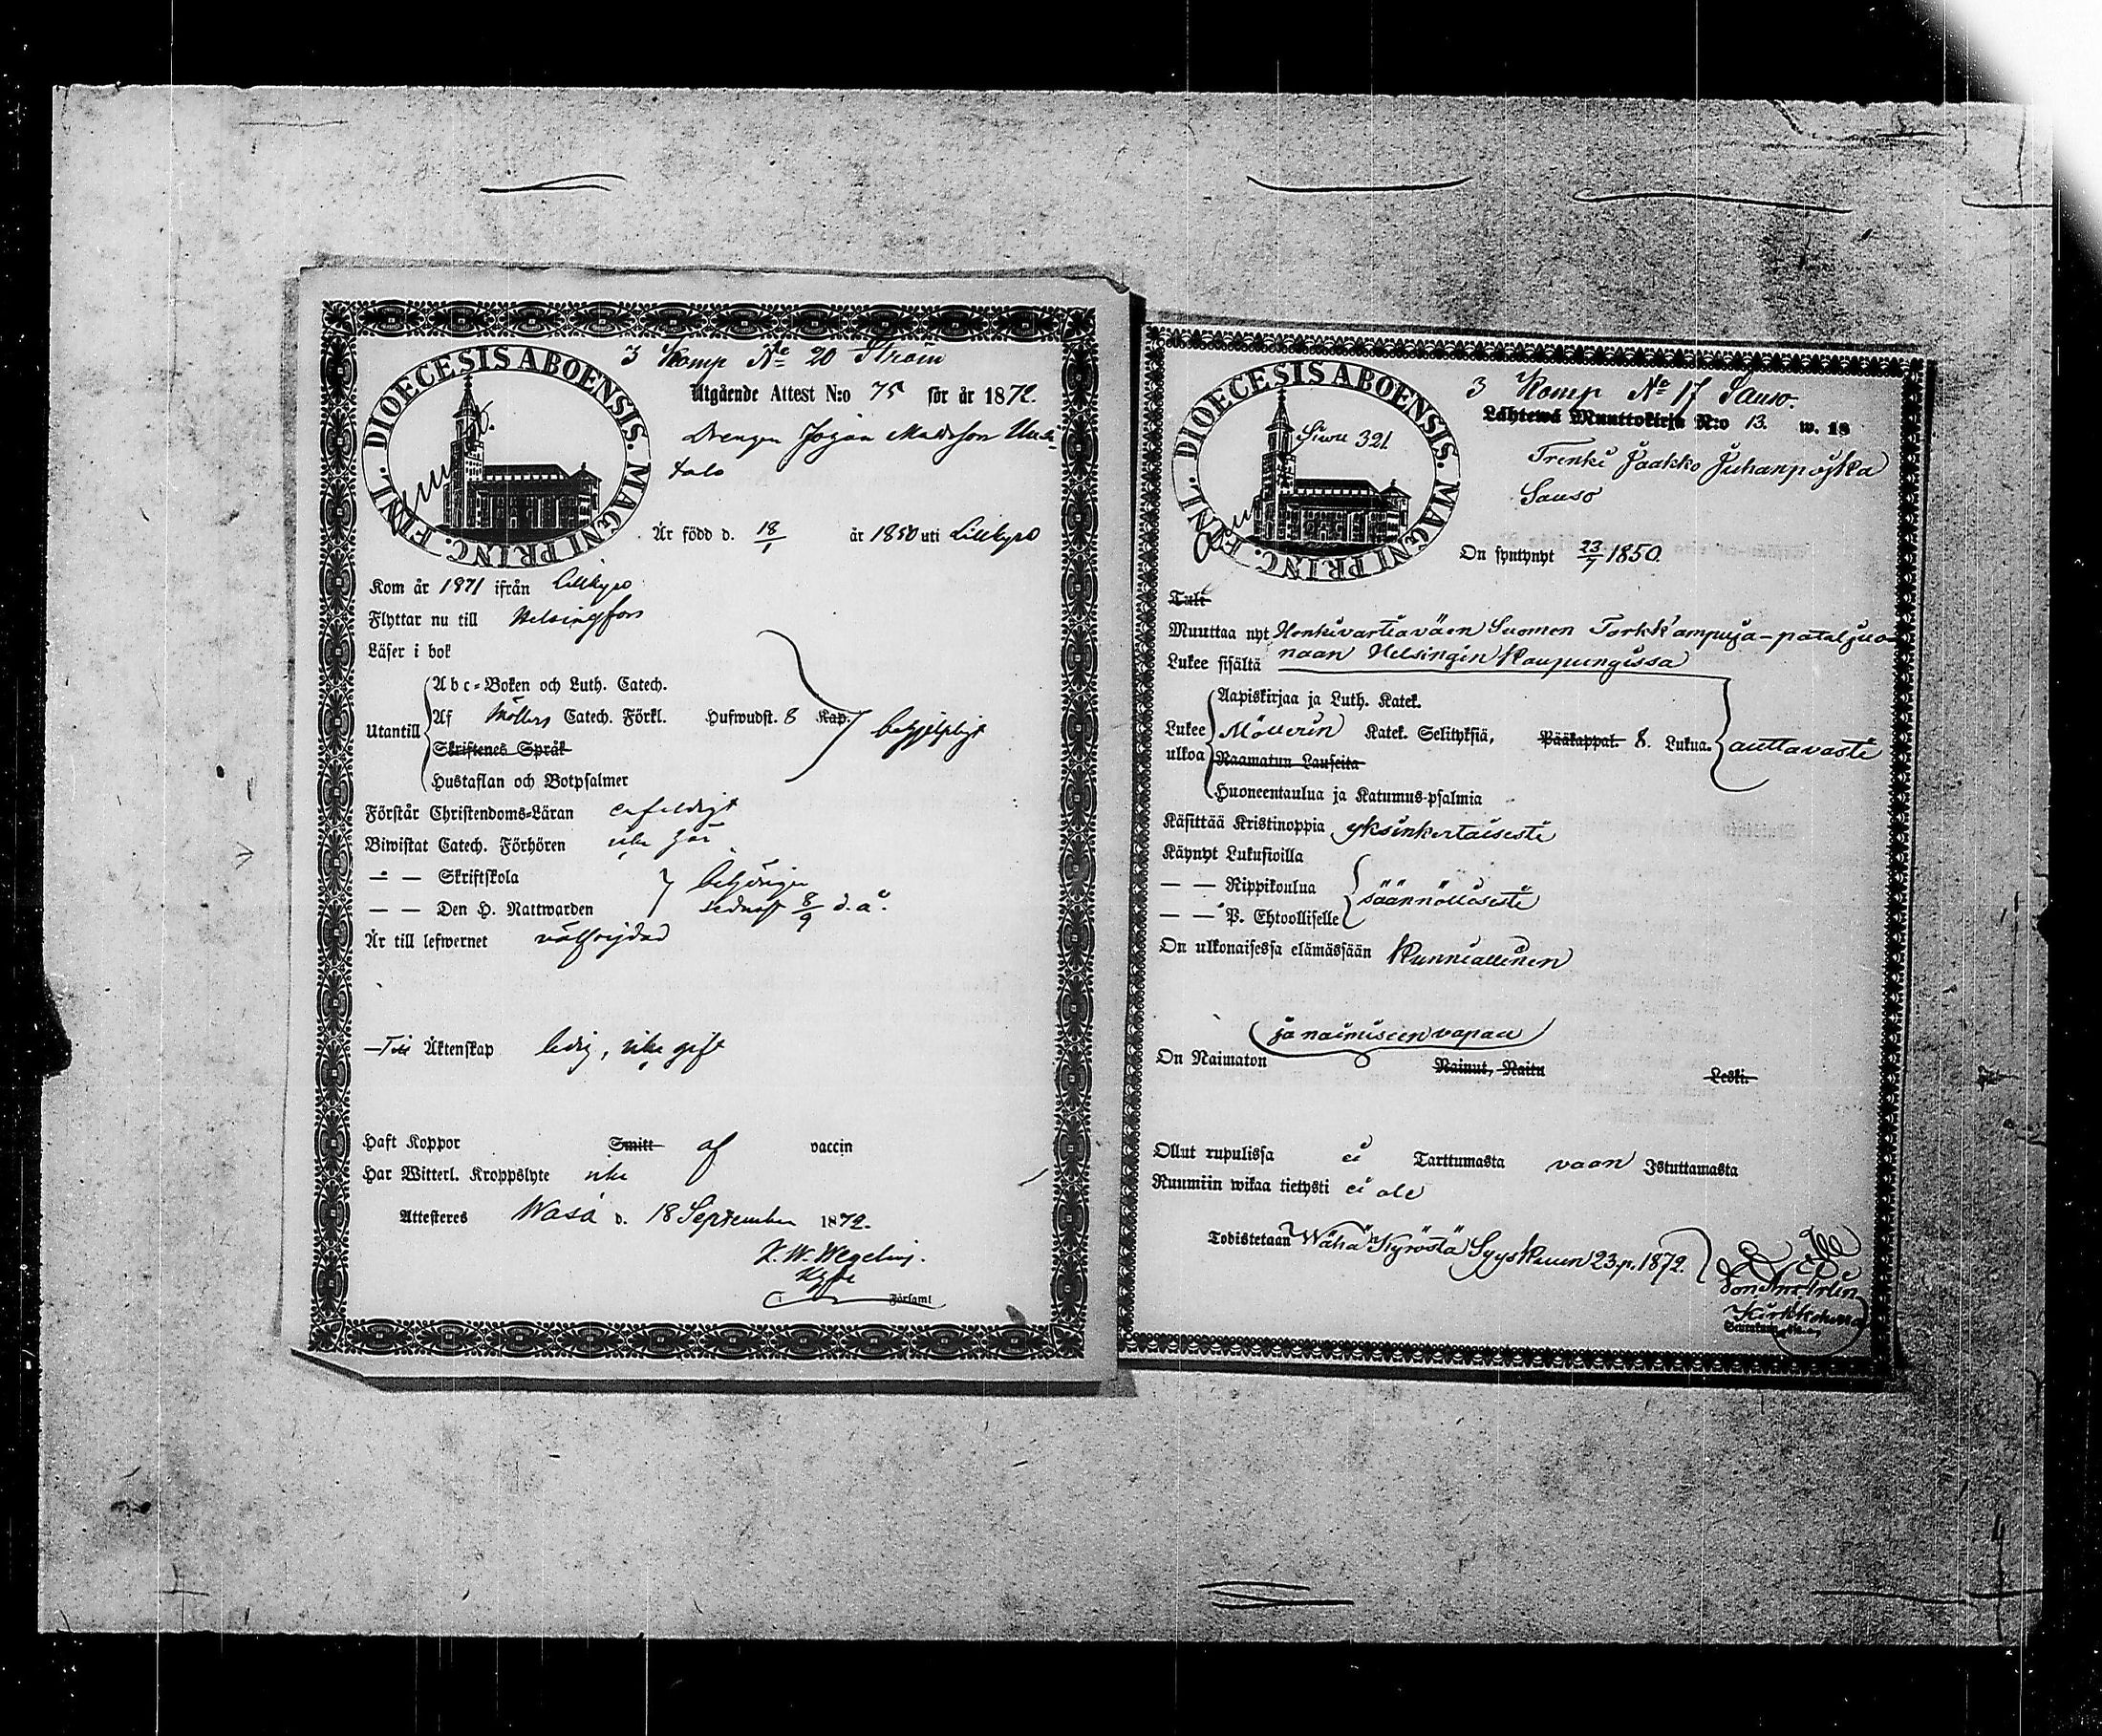 3 Komp No 20 Ström
DIOECESIS ABOENSIS. MAGNI PRINC. FINL.
Utgående Attest N:o 75 för år 1872.
Drengen Johan Mattsson Uusi-
talo
Är född d. 18/1 år 1850 uti Lillkyro
Kom år 1871 ifrån Lillkyro
Flyttar nu till Helsingfors
Läser i bok
Utantill
Abc-Boken och Luth. Catech.
Af Möllers Catech. Förkl. Hufwudst. 8 Kap.
Skriftenes Språk
Hustaflan och Botpsalmer
behjelpligt
Förstår Christendoms-Läran enfaldigt
Biwistat Catech. Förhören icke här
— — Skriftskola behörigen
— — Den H. Nattwarden sednast 8/9 d. å.
Är till lefwernet välfrejdad
Till Äktenskap ledig, icke gift
Haft Koppor Smitt af vaccin
Har Witterl. Kroppslyte icke
Attesteres Wasa d. 18 September 1872.
K. W. Wegelius.
Församl
3 Komp No 17 Sauso.
DIOECESIS ABOENSIS. MAGNI PRINC. FINL.
Siwu 321
Lähtewä Muuttokirja N:o 13. w. 18
Trenki Jaakko Juhanpojka
Sauso
On syntynyt 23/7 1850.
Tuli
Muuttaa nyt Henkivartiaväen Suomen Tarkk'ampuja-pataljuo-
naan Helsingin Kaupungissa
Lukee sisältä
Lukee ulkoa
Aapiskirjaa ja Luth. Katek.
Möllerin Katek. Selityksiä, Pääkappal. 8. Lukua.
Raamatun Lauseita
Huoneentaulua ja Katumus-psalmia
auttavasti
Käsittää Kristinoppia yksinkertaisesti
Käynyt Lukusioilla
— — Rippikoulua
— — P. Ehtoolliselle
säännöllisesti
On ulkonaisessa elämässään Kunniallinen
ja naimiseen vapaa
On Naimaton Nainut, Naitu Leski.
Ollut rupulissa ei Tarttumasta vaan Istuttamasta
Ruumiin wikaa tietysti ei ole
Todistetaan Wähä Kyröstä Syyskuun 23.p. 1872.